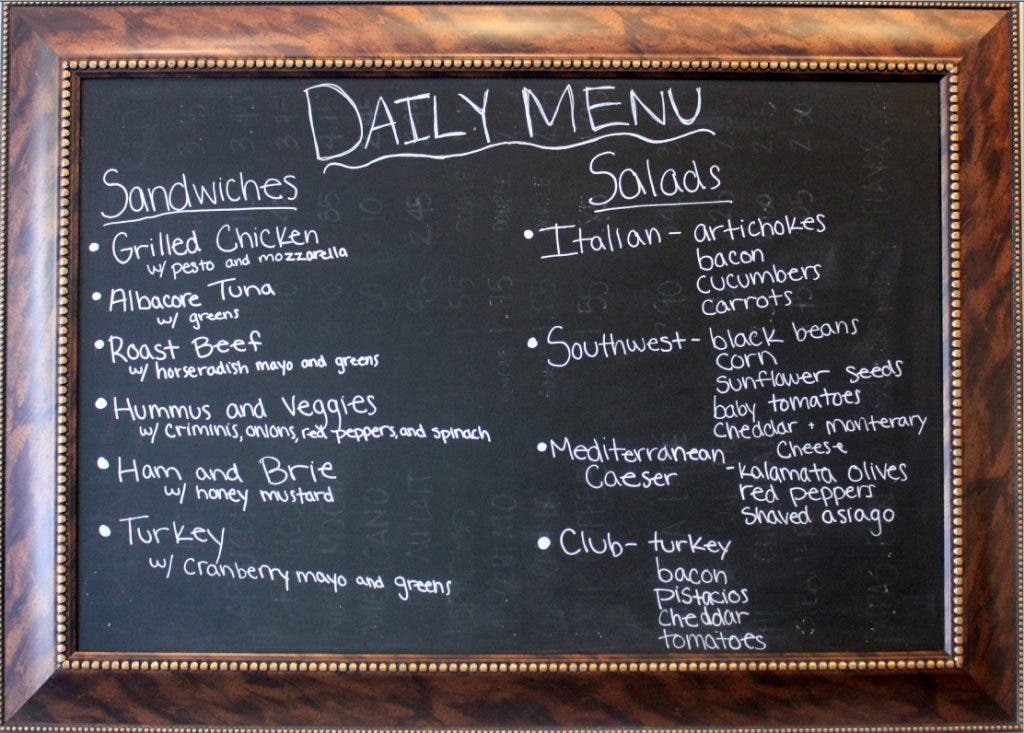 DAILY MENU
Sandwiches
• Grilled Chicken
w/ pesto and mozzarella
• Albacore Tuna
w/ greens
• Roast Beef
w/ horseradish mayo and greens
• Hummus and Veggies
w/ criminis, onions, red peppers, and spinach
• Ham and Brie
w/ honey mustard
• Turkey
w/ cranberry mayo and greens
Salads
• Italian - artichokes
bacon
cucumbers
carrots
• Southwest - black beans
corn
sunflower seeds
baby tomatoes
cheddar + monterary
cheese
• Mediterranean
Caeser - kalamata olives
red peppers
shaved asiago
• Club - turkey
bacon
pistacios
cheddar
tomatoes